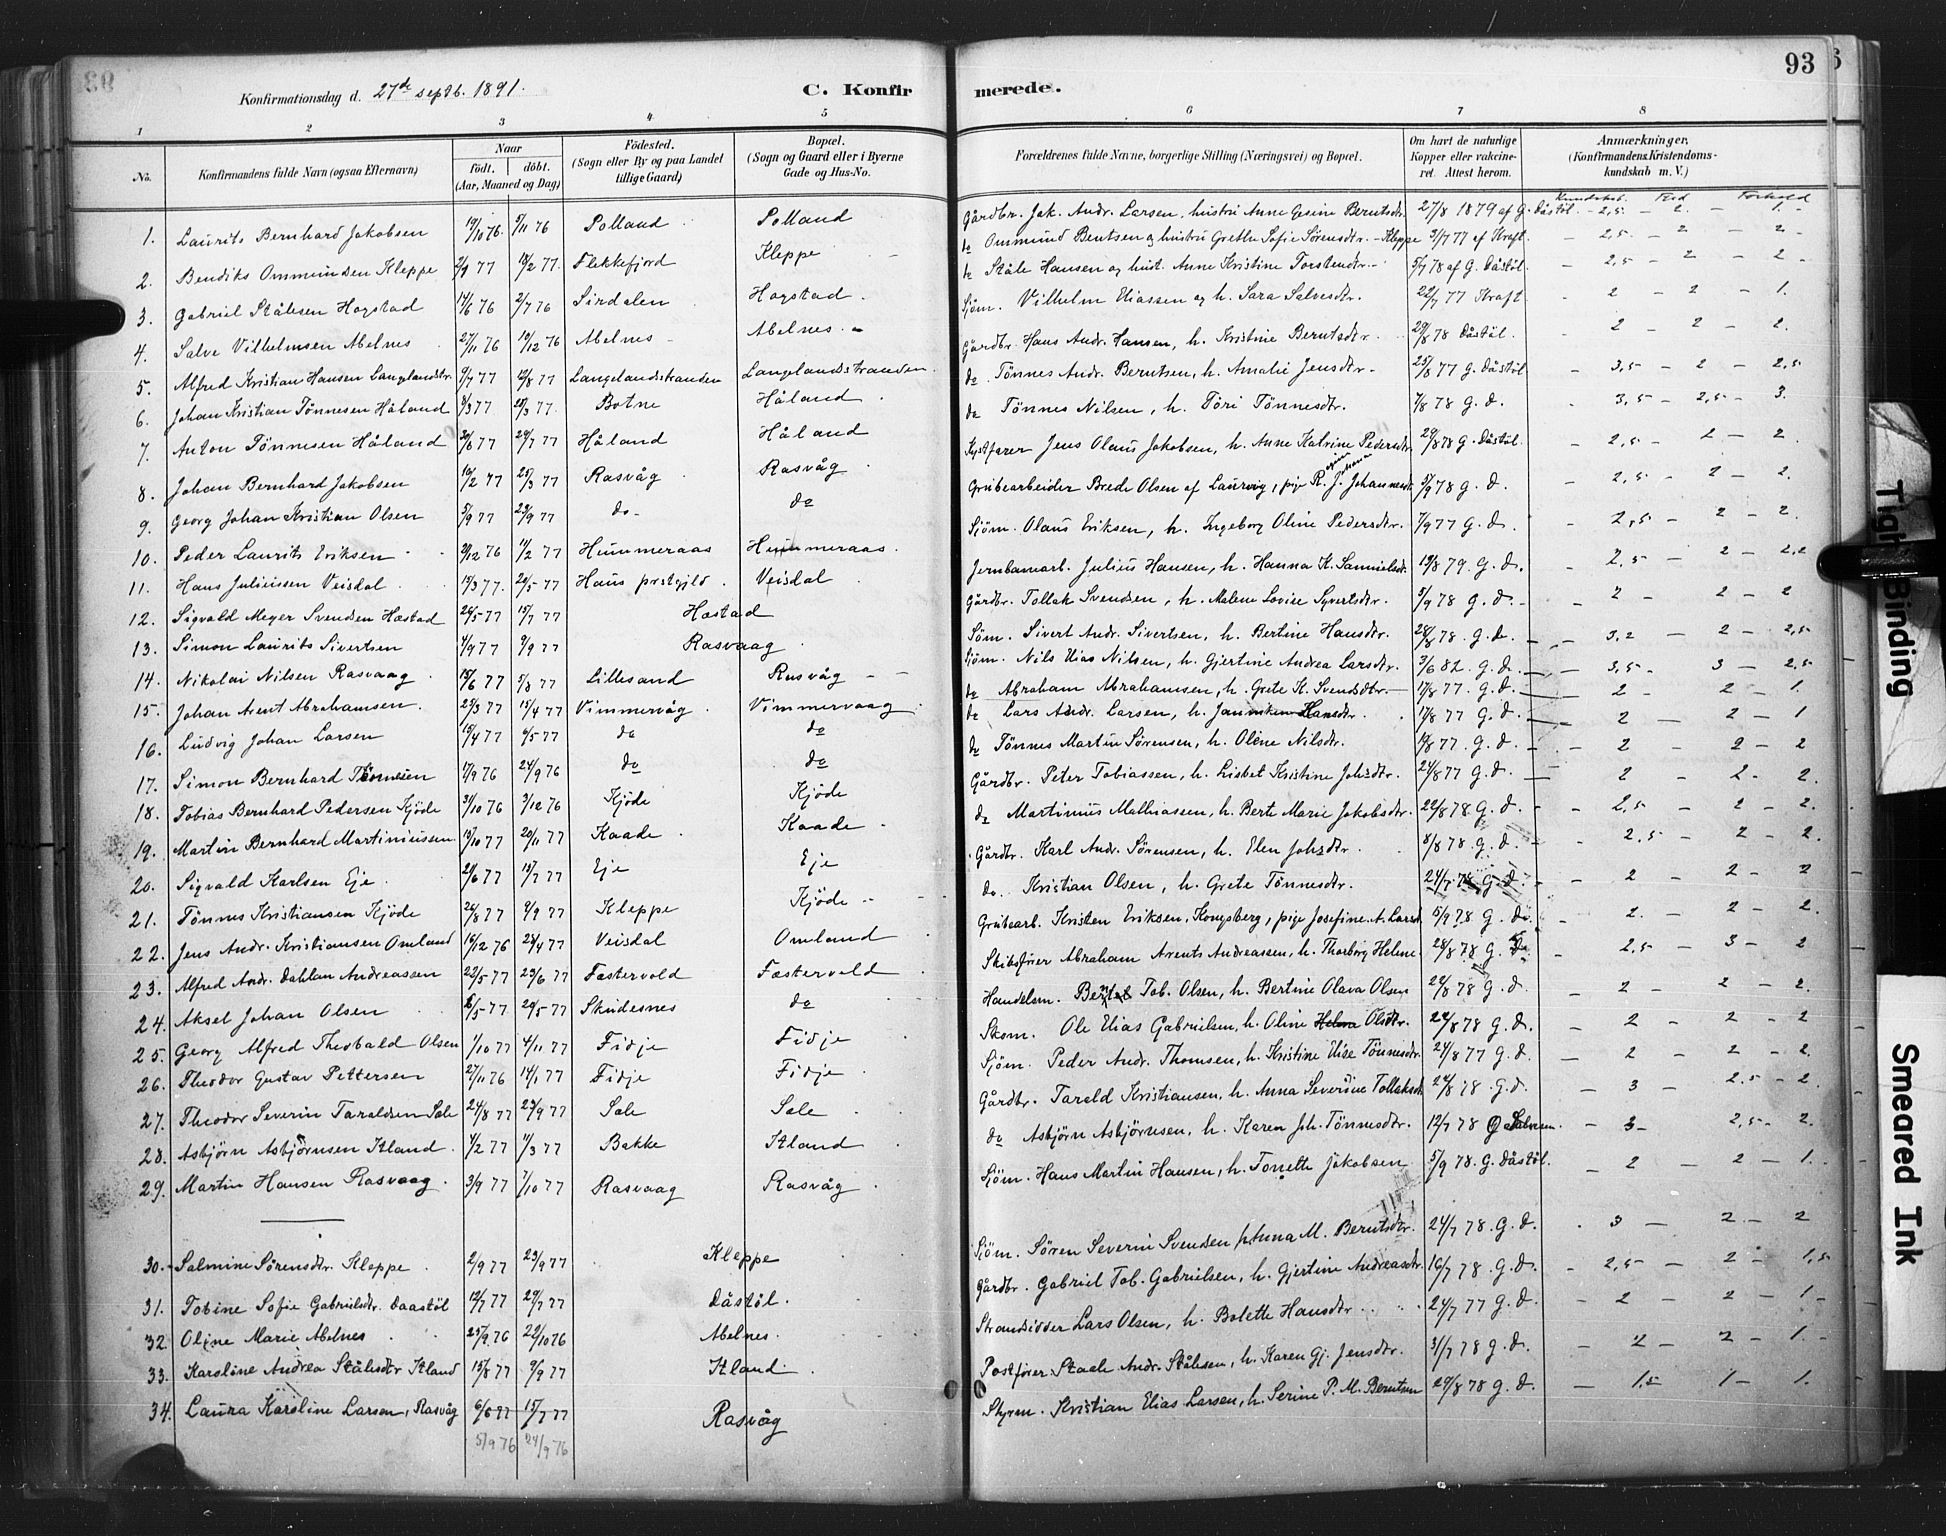 93
Konfirmationsdag d. 27de septb. 1891.
C. Konfirmerede.
1 2 3 4 5 6 7 8
No.
Konfirmandens fulde Navn (ogsaa Efternavn)
Naar
født. døbt.
(Aar, Maaned og Dag)
Fødested.
(Sogn eller By og paa Landet tillige Gaard)
Bopæl.
(Sogn og Gaard eller i Byerne Gade og Hus-No.
Forældrenes fulde Navne, borgerlige Stilling (Næringsvei) og Bopæl.
Om havt de naturlige Kopper eller vakcineret. Attest herom.
Anmærkninger,
(Konfirmandens Kristendomskundskab m. V.)
Kundskab. Flid Forhold
1. Laurits Bernhard Jakobsen 19/10 76. 5/11 76 Polland Polland Gårdbr. Jak. Andr. Larsen, hustru Anne Gesine Berntsdtr. 27/8 1879 af G. Dåstøl - 2,5 - 2 - 1. -
2. Bendiks Ommundsen Kleppe 2/9 77 18/2 77. Flekkefjord Kleppe do Ommund Bentsen og hustru Grethe Sofie Sørensdtr. - Kleppe 3/7 77 af Kraft - 2,5 - 2 - 2 -
3. Gabriel Stålesen Hogstad 14/6 76 2/7 76 Sirdalen Hogstad do Ståle Hansen og hust. Anne Kristine Torstendtr. 5/7 78 af G. Dåstøl - 2,5 - 2 - 2 -
4. Salve Vilhelmsen Abelnes 27/11 76 10/12 76 Abelnes Abelnes Sjöm. Vilhelm Eliassen og h. Sara Salvesdtr. 22/7 77 Kraft - 2 - 2 - 1.
5. Alfred Kristian Hansen Langelandstr. 9/7 77 12/8 77 Langelandsstranden Langelandsstranden Gårdbr. Hans Andr. Hansen, h. Kristine Berntsdtr. 29/8 78 Dåstøl. - 2 - 2 - 2.
6. Johan Kristian Tönnesen Håland 8/3 77 20/3 77. Botne Håland do Tönnes Andr. Berntsen, h. Amalie Jensdtr. 25/8 77 G. Dåstøl - 3,5 - 2 - 2,5
7. Anton Tönnesen Håland 30/6 77 29/7 77 Håland Håland do Tönnes Nilsen, h. Töri Tönnesdtr. 7/8 78 G. D. - 3,5 - 2,5 - 3.
8. Johan Bernhard Jakobsen 10/2 77 25/3 77 Rasvåg Rasvåg Kystfarer Jens Olaus Jakobsen, h. Anne Katrine Pedersdtr 29/8 78 G. Dåstøl. - 2,5 - 2 - 2.
9. Georg Johan Kristian Olsen 5/9 77 29/9 77 do - do Grubearbeider Brede Olsen af Laurvig, pige R. J. Johannesdt. 5/9 78 G. D. - 2,5 - 2 - 2.
10. Peder Laurits Eriksen 31/12 76 11/2 77 Hummeraas Hummeraas. Sjöm. Olaus Eriksen, h. Ingeborg Oline Pedersdtr. 7/9 77 G. D. - 2,5 - 2 - 2.
11. Hans Juliussen Veisdal 14/3 77. 20/5 77 Haus prstgjld. Veisdal Jernbanearb. Julius Hansen, h. Hanna K. Samuelsdt. 19/8 79 G. D. - 2,5 - 2 - 2,2
12. Sigvald Meyer Svendsen Hæstad 24/5 77 15/7 77 Hæstad Gårdbr. Tollak Svendsen, h. Malene Lovise Syvertsdtr. 5/9 78 G. D. - 2 - 2 - 2
13. Simon Laurits Sivertsen 4/9 77 9/9 77 Rasvaag Sjöm. Sivert Andr. Sivertsen, h. Bertine Hansdtr. 28/8 78. G. D. - 3,2 - 2 - 2,5
14. Nikolai Nilsen Rasvaag 15/6 77 5/8 77 Lillesand Rasvåg - - Sjöm. Nils Elias Nilsen, h. Gjertine Andrea Larsdtr. 3/6 82. G. D. - 3,5 - 3 - 2,5
15. Johan Arent Abrahamsen. 23/3 77 15/4 77 Vimmervåg Vimmervaag do Abraham Abrahamsen, h. Grete K. Svendsdtr. 17/8 77. G. D. - 2 - 2 - 1.
16. Ludvig Johan Larsen 15/4 77 6/5 77 do do do Lars Andr. Larsen, h. Janniken Hansdtr. 17/8 77 G. D. - 2 - 2 - 1
17. Simon Bernhard Tönnesen 17/9 76 24/9 76 do do do Tönnes Martin Sörensen, h. Oline Nilsdtr. 19/8 77. G. D. - 2 - 2 - 2
18. Tobias Bernhard Pedersen Kjöde 31/10 76 3/12 76 Kjöde Kjöde Gårdbr. Peter Tobiassen, h. Lisbet Kristine Johsdtr. 24/8 77 G. D. - 2 - 2 - 2.
19. Martin Bernhard Martiniussen 15/10 77 20/11 77 Kaade Kaade do Martinius Mathiassen, h. Berte Marie Jakobsdtr. 22/8 78. G. D. - 2,5 - 2 - 2.
20. Sigvald Karlsen Eje. 21/6 77 15/7 77 Eje Eje Gårdbr. Karl Andr. Sörensen, h. Elen Johsdtr. 8/8 78. G. D. - 2,5 - 2 - 2.
21. Tönnes Kristiansen Kjöde 26/8 77 9/9 77 Kleppe Kjöde do. Kristian Olsen, h. Grete Tönnesdtr. 24/7 78 G. D. - 2 - 2 - 2
22. Jens Andr. Kristiansen Omland 16/12 76 28/4 77 Veisdal Omland Grubearb. Kristen Eriksen, Kongsberg, pige Josefine A. Larsd. 5/9 78 G. D. - 2. - 2 - 2.
23. Alfred Andr. Dahlen Andreassen 22/5 77 23/6 77 Fæstervold Fæstervold Skibsfører Abraham Arents Andreassen, h. Thorborg Helene 28/8 78 G. D. - 2,5 - 3 - 2
24. Aksel Johan Olsen 6/5 77 20/5 77 Skudesnes do Handelsm. Bernt Tob. Olsen, h. Bertine Olava Olsen 22/8 78 G. D. - 2 - 2 - 2.
25. Georg Alfred Theobald Olsen 1/10 77 4/11 77 Fidje Fidje Skom. Ole Elias Gabrielsen, h. Oline Helma Olsdtr. 22/8 78 G. D. - 2 - 2 - 2
26. Theodor Gustav Pettersen 27/11 76 14/1 77 Fidje Fidje. Sjöm. Peder Andr. Thomsen, h. Kristine Elise Tönnesdtr. 24/8 77 G. D. - 2 - 2 - 2.
27. Theodor Severin Taraldsen Sale 24/8 77 23/9 77 Sale Sale Gårdbr. Tarald Kristiansen, h. Anna Severine Tollaksdt 24/8 78 G. D. - 3 - 2,5 - 2.
28. Asbjörn Asbjörnsen Itland 4/2 77 11/3 77 Bakke Itland do Asbjörn Asbjörnsen, h. Karen Joh. Tönnesdtr. 12/7 78 O Salvesen. - 3 - 2,5 - 2.
29. Martin Hansen Rasvaag. 3/9 77 7/10 77 Rasvaag Rasvåg Sjöm. Hans Martin Hansen, h. Tonette Jakobsen 5/9 78. G. Dåstøl. - 2 - 2 - 1.
30. Salmine Sörensdtr. Kleppe 2/9 77 23/9 77 Kleppe Sjöm. Sören Severin Svendsen h. Anna M. Berntsdtr. 24/7 78 G. D. - 3 - 2 - 2
31. Tobine Sofie Gabrielsdtr. Daastöl 12/7 77 29/7 77 Dåstöl. Gårdbr. Gabriel Tob. Gabrielsen, h. Gjertine Andreasdtr 16/7 78 G. D. - 2,5 - 2 - 1,5
32. Oline Marie Abelnes 25/9 76 22/10 76 Abelnes. Strandsidder Lars Olsen, h. Bolette Hansdtr 24/7 77 G. D. - 2 - 2 - 1 -
33. Karoline Andrea Stålesdtr Itland 15/8 77 9/9 77 Itland. Postfører Staale Andr. Stålesen, h. Karen Gj. Jensdtr. 31/7 78 G. D. - 2 - 2 - 1. -
34. Laura Karoline Larsen, Rasvåg 6/6 77 15/7 77 Rasvåg Styrm. Kristian Elias Larsen, h. Serine P. M. Berntsen 29/8 78 G. D. - 1,5 1 - 1.
5/9 76 24/9 76
Tight Binding
Smeared Ink